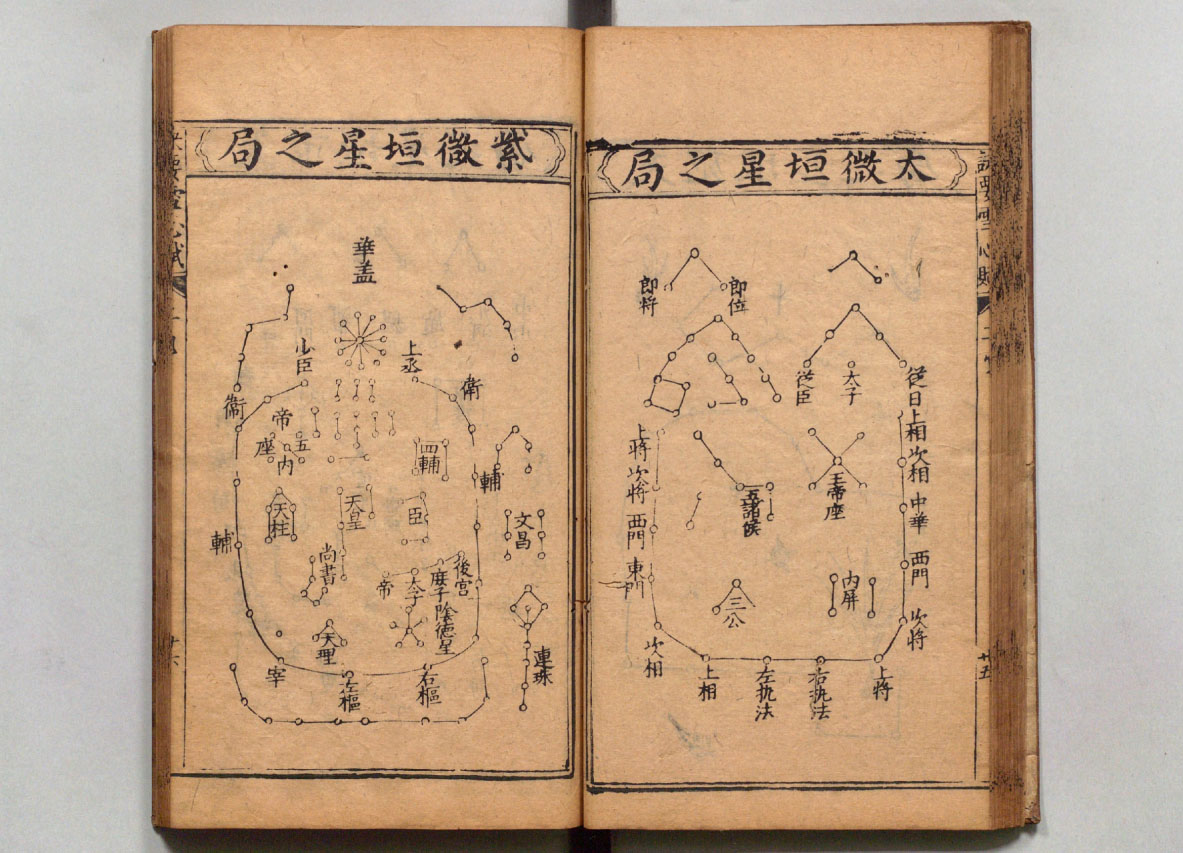 太微垣星之局
即位
即将
從臣
太子
從日
上相
次相
中華
西門
次将
上将
右执法
左执法
上相
次相
東門
西門
次将
上将
五諸候
王帝座
内屏
三公
十五
紫微垣星之局
華盖
上丞
少臣
衛
衛
帝座
五内
四輔
輔
輔
天柱
天皇
臣
文昌
尚書
帝
太子
庶子
後宫
陰德星
天理
連珠
宰
左樞
右樞
十六